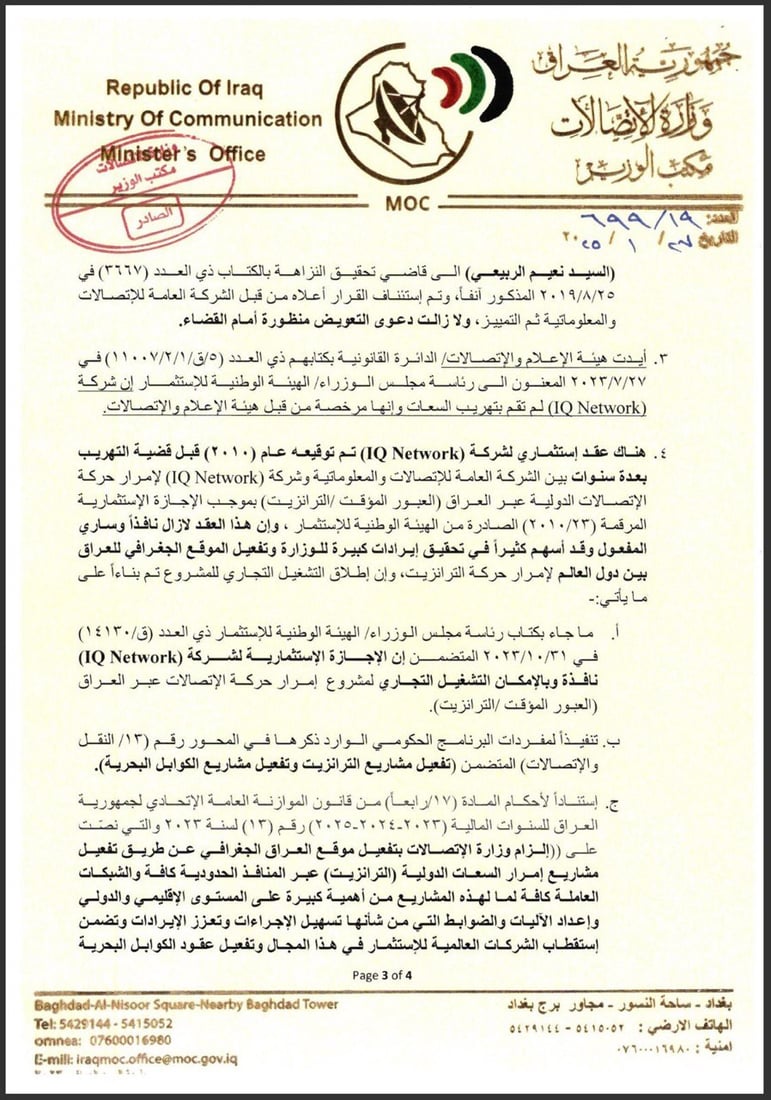 Republic Of Iraq
Ministry Of Communication
Minister's Office
جمهورية العراق
وزارة الاتصالات
مكتب الوزير
MOC
وزارة الاتصالات
مكتب الوزير
الصادر
العدد: ٦٩٩/١٩
التاريخ ٢٧/ ١ / ٢٠٢٥
(السيد نعيم الربيعي) الى قاضي تحقيق النزاهة بالكتاب ذي العدد (٣٦٦٧) في
٢٠١٩/٨/٢٥ المذكور آنفاً، وتم إستئناف القرار أعلاه من قبل الشركة العامة للإتصالات
والمعلوماتية ثم التمييز، ولا زالت دعوى التعويض منظورة أمام القضاء.
٣. أيدت هيئة الإعلام والإتصالات/ الدائرة القانونية بكتابهم ذي العدد (٥/ق/١١٠٠٧/٢/١) في
٢٠٢٣/٧/٢٧ المعنون الى رئاسة مجلس الوزراء/ الهيئة الوطنية للإستثمار إن شركة
(IQ Network) لم تقم بتهريب السعات وإنها مرخصة من قبل هيئة الإعلام والإتصالات.
٤. هناك عقد إستثماري لشركة (IQ Network) تم توقيعه عام (٢٠١٠) قبل قضية التهريب
بعدة سنوات بين الشركة العامة للإتصالات والمعلوماتية وشركة (IQ Network) لإمرار حركة
الإتصالات الدولية عبر العراق (العبور المؤقت /الترانزيت) بموجب الإجازة الإستثمارية
المرقمة (٢٠١٠/٢٣) الصادرة من الهيئة الوطنية للإستثمار ، وإن هذا العقد لازال نافذاً وساري
المفعول وقد أسهم كثيراً في تحقيق إيرادات كبيرة للوزارة وتفعيل الموقع الجغرافي للعراق
بين دول العالم لإمرار حركة الترانزيت، وإن إطلاق التشغيل التجاري للمشروع تم بناءاً على
ما يأتي:-
أ. ما جاء بكتاب رئاسة مجلس الوزراء/ الهيئة الوطنية للإستثمار ذي العدد (ق/١٤١٣٠)
في ٢٠٢٣/١٠/٣١ المتضمن إن الإجازة الإستثمارية لشركة (IQ Network)
نافذة وبالإمكان التشغيل التجاري لمشروع إمرار حركة الإتصالات عبر العراق
(العبور المؤقت /الترانزيت).
ب. تنفيذاً لمفردات البرنامج الحكومي الوارد ذكرها في المحور رقم (١٣/ النقل
والإتصالات) المتضمن (تفعيل مشاريع الترانزيت وتفعيل مشاريع الكوابل البحرية).
ج. إستناداً لأحكام المادة (١٧/رابعاً) من قانون الموازنة العامة الإتحادي لجمهورية
العراق للسنوات المالية (٢٠٢٣-٢٠٢٤-٢٠٢٥) رقم (١٣) لسنة ٢٠٢٣ والتي نصت
على ((إلزام وزارة الإتصالات بتفعيل موقع العراق الجغرافي عن طريق تفعيل
مشاريع إمرار السعات الدولية (الترانزيت) عبر المنافذ الحدودية كافة والشبكات
العاملة كافة لما لهذه المشاريع من أهمية كبيرة على المستوى الإقليمي والدولي
وإعداد الآليات والضوابط التي من شأنها تسهيل الإجراءات وتعزز الإيرادات وتضمن
إستقطاب الشركات العالمية للإستثمار في هذا المجال وتفعيل عقود الكوابل البحرية
Page 3 of 4
Baghdad-Al-Nisoor Square-Nearby Baghdad Tower
Tel: 5429144 - 5415052
omnea: 07600016980
E-mili: iraqmoc.office@moc.gov.iq
بغداد - ساحة النسور - مجاور برج بغداد
الهاتف الارضي : ٥٤١٥٠٥٢ - ٥٤٢٩١٤٤
امنية : ٠٧٦٠٠٠١٦٩٨٠